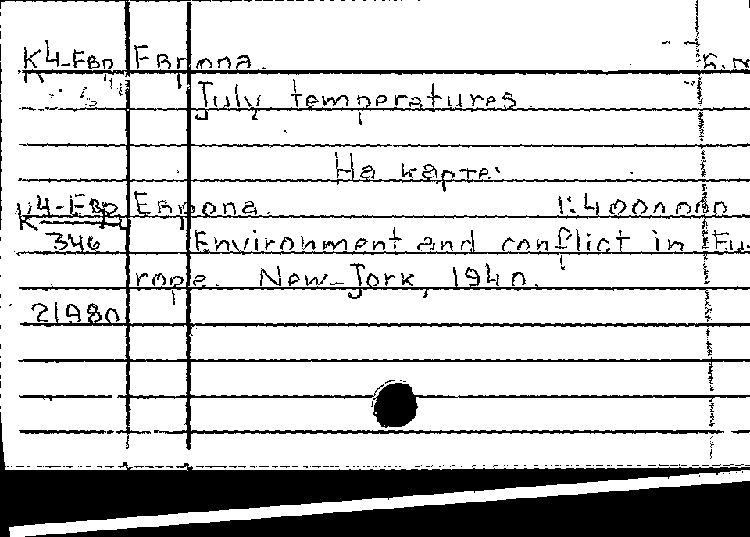 К4-Евр Европа.
July temperatures.
На карте:
К 4-Евр Европа. 1:4000000
346 Environment and conflict in Eu-
rope. New-Jork, 1940.
21980